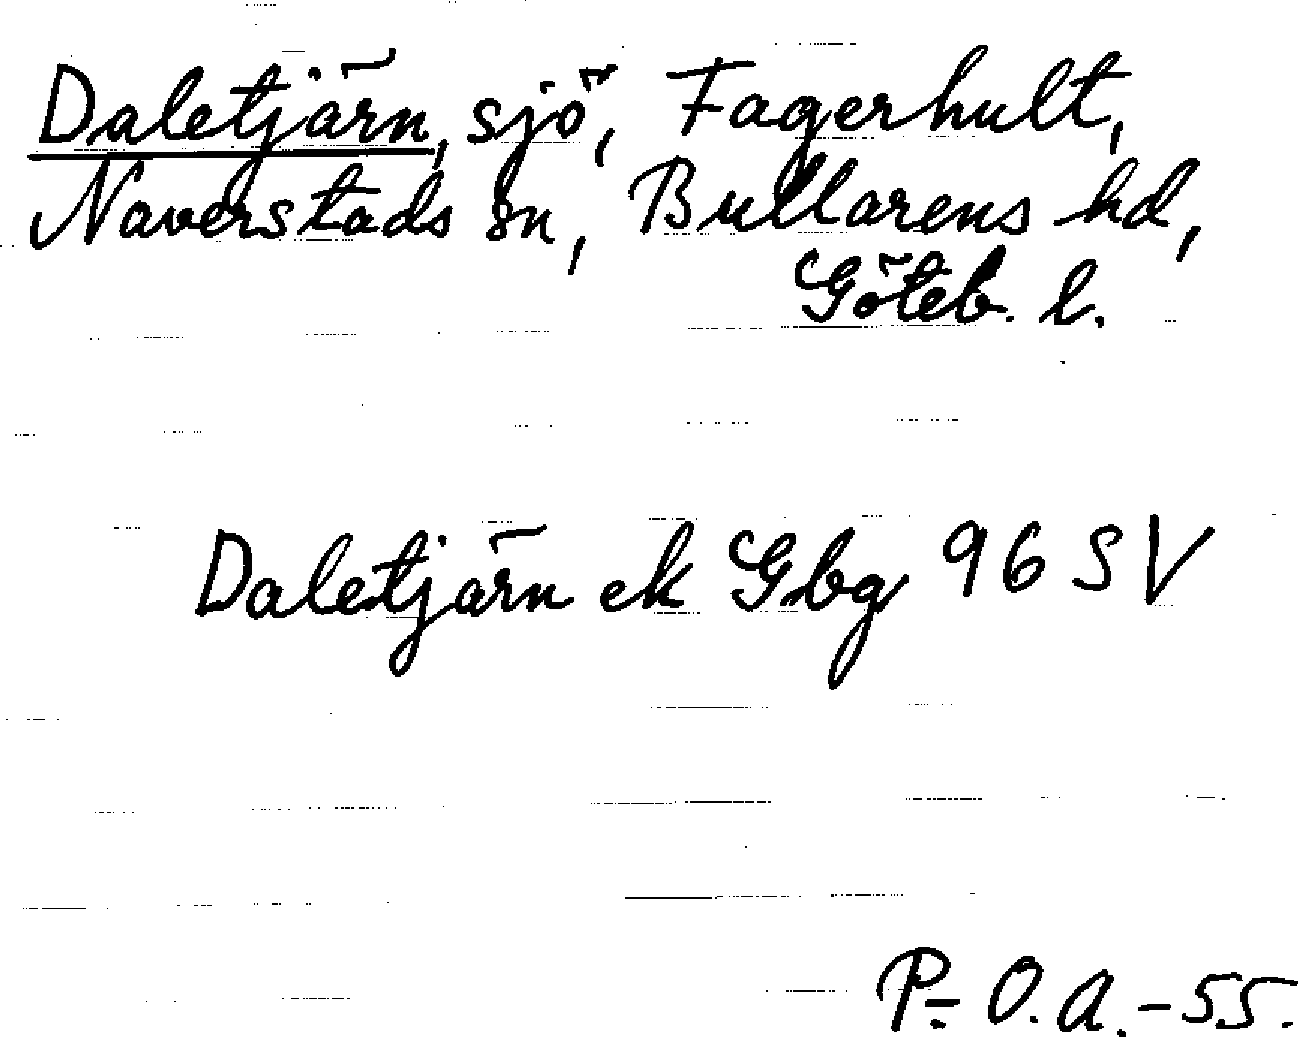 Daletjärn, sjö, Fagerhult,
Naverstads sn, Bullarens hd,
Göteb. l.
Daletjärn ek Gbg 96 SV
P.-O.A.-55.